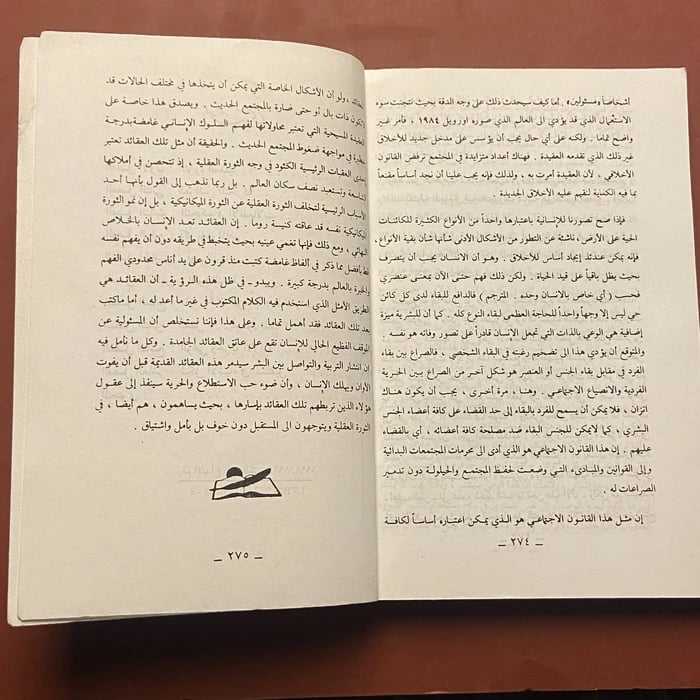 أشخاصاً ومسئولين» . أما كيف سيحدث ذلك على وجه الدقة بحيث نتجنب سوء
الاستعمال الذي قد يؤدي الى العالم الذي صوره اورويل ١٩٨٤ ، فأمر غير
واضح تماما . ولكنه على أي حال يجب أن يؤسس على مدخل جديد للأخلاق
غير ذلك الذي تقدمه العقيدة . فهناك أعداد متزايدة في المجتمع ترفض القانون
الأخلاقي ، لأن العقيدة أمرت به ، ولذلك فإنه يجب علينا أن نجد أساساً مقنعاً
بما فيه الكفاية لنقيم عليه الأخلاق الجديدة .
فإذا صح تصورنا للإنسانية باعتبارها واحداً من الأنواع الكثيرة للكائنات
الحية على الأرض ، ناشئة عن التطور من الأشكال الأدنى شأنها شأن بقية الأنواع ،
فإنه يمكن عندئذ إيجاد أساس للأخلاق . وهو أن الانسان يجب أن يتصرف
بحيث يظل باقياً على قيد الحياة . ولكن ذلك فهم حتى الآن بمعنى عنصري
فحسب ( أي خاص بالانسان وحده . المترجم ) فالدافع للبقاء لدى كل كائن
حي ليس إلا وجهاً واحداً للحاجة العظمى لبقاء النوع كله . كما أن للبشرية ميزة
إضافية هي الوعي بالذات التي تجعل الإنسان قادراً على تصور وفاته هو نفسه .
والمتوقع أن يؤدي هذا الى تضخيم رغبته في البقاء الشخصي ، فالصراع بين بقاء
الفرد في مقابل بقاء الجنس أو العنصر هو شكل آخر من الصراع بين الحرية
الفردية والانصياع الاجتماعي . وهنا ، مرة أخرى ، يجب أن يكون هناك
اتزان ، فلا يمكن أن يسمح للفرد بالبقاء إلى حد القضاء على كافة أعضاء الجنس
البشري ، كما لا يمكن للجنس البقاء ضد مصلحة كافة أعضائه ، أي بالقضاء
عليهم . إن هذا القانون الاجتماعي هو الذي أدى الى محرمات المجتمعات البدائية
وإلى القوانين والمبادىء التي وضعت لحفظ المجتمع والحيلولة دون تدمير
الصراعات له .
إن مثل هذا القانون الاجتماعي هو الذي يمكن اعتباره أساساً لكافة
– ٢٧٤ –
العقائد ، ولو أن الأشكال الخاصة التي يمكن أن يتخذها في مختلف الحالات قد
لا تكون ذات بال أو حتى ضارة بالمجتمع الحديث . ويصدق هذا خاصة على
العقيدة المسيحية التي تعتبر محاولاتها لفهم السلوك الإنساني غامضة بدرجة
خطيرة في مواجهة ضغوط المجتمع الحديث . والحقيقة أن مثل تلك العقائد تعتبر
إحدى العقبات الرئيسية الكئود في وجه الثورة العقلية ، إذ تتحصن في أملاكها
الشاسعة وتستعبد نصف سكان العالم . بل ربما نذهب إلى القول بأنها أحد
الأسباب الرئيسية لتخلف الثورة العقلية عن الثورة الميكانيكية ، بل إن نمو الثورة
الميكانيكية نفسه قد عاقته كنيسة روما . إن العقائد تعد الإنسان بالخلاص
النهائي ، ومع ذلك فإنها تغمي عينيه بحيث يتخبط في طريقه دون أن يفهم نفسه
قط بأفضل مما ذكر في ألفاظ غامضة كتبت منذ قرون على يد أناس محدودي الفهم
والخبرة بالعالم بدرجة كبيرة . ويبدو – في ظل هذه الرؤية – أن العقائد هي
الطريق الأمثل الذي استخدم فيه الكلام المكتوب في غير ما أعد له ، أما ما كتب
بعد تلك العقائد فقد أهمل تماما . وعلى هذا فإننا نستخلص أن المسئولية عن
الموقف الفظيع الحالي للإنسان تقع على عاتق العقائد الجامدة . وكل ما نأمل فيه
ان انتشار التربية والتواصل بين البشر سيدمر هذه العقائد القديمة قبل أن يفوت
الأوان ويهلك الانسان ، وأن ضوء حب الاستطلاع والحرية سينفذ إلى عقول
هؤلاء الذين تربطهم تلك العقائد بإسارها ، بحيث يساهمون ، هم أيضا ، في
الثورة العقلية ويتوجهون الى المستقبل دون خوف بل بأمل واشتياق .
– ٢٧٥ –